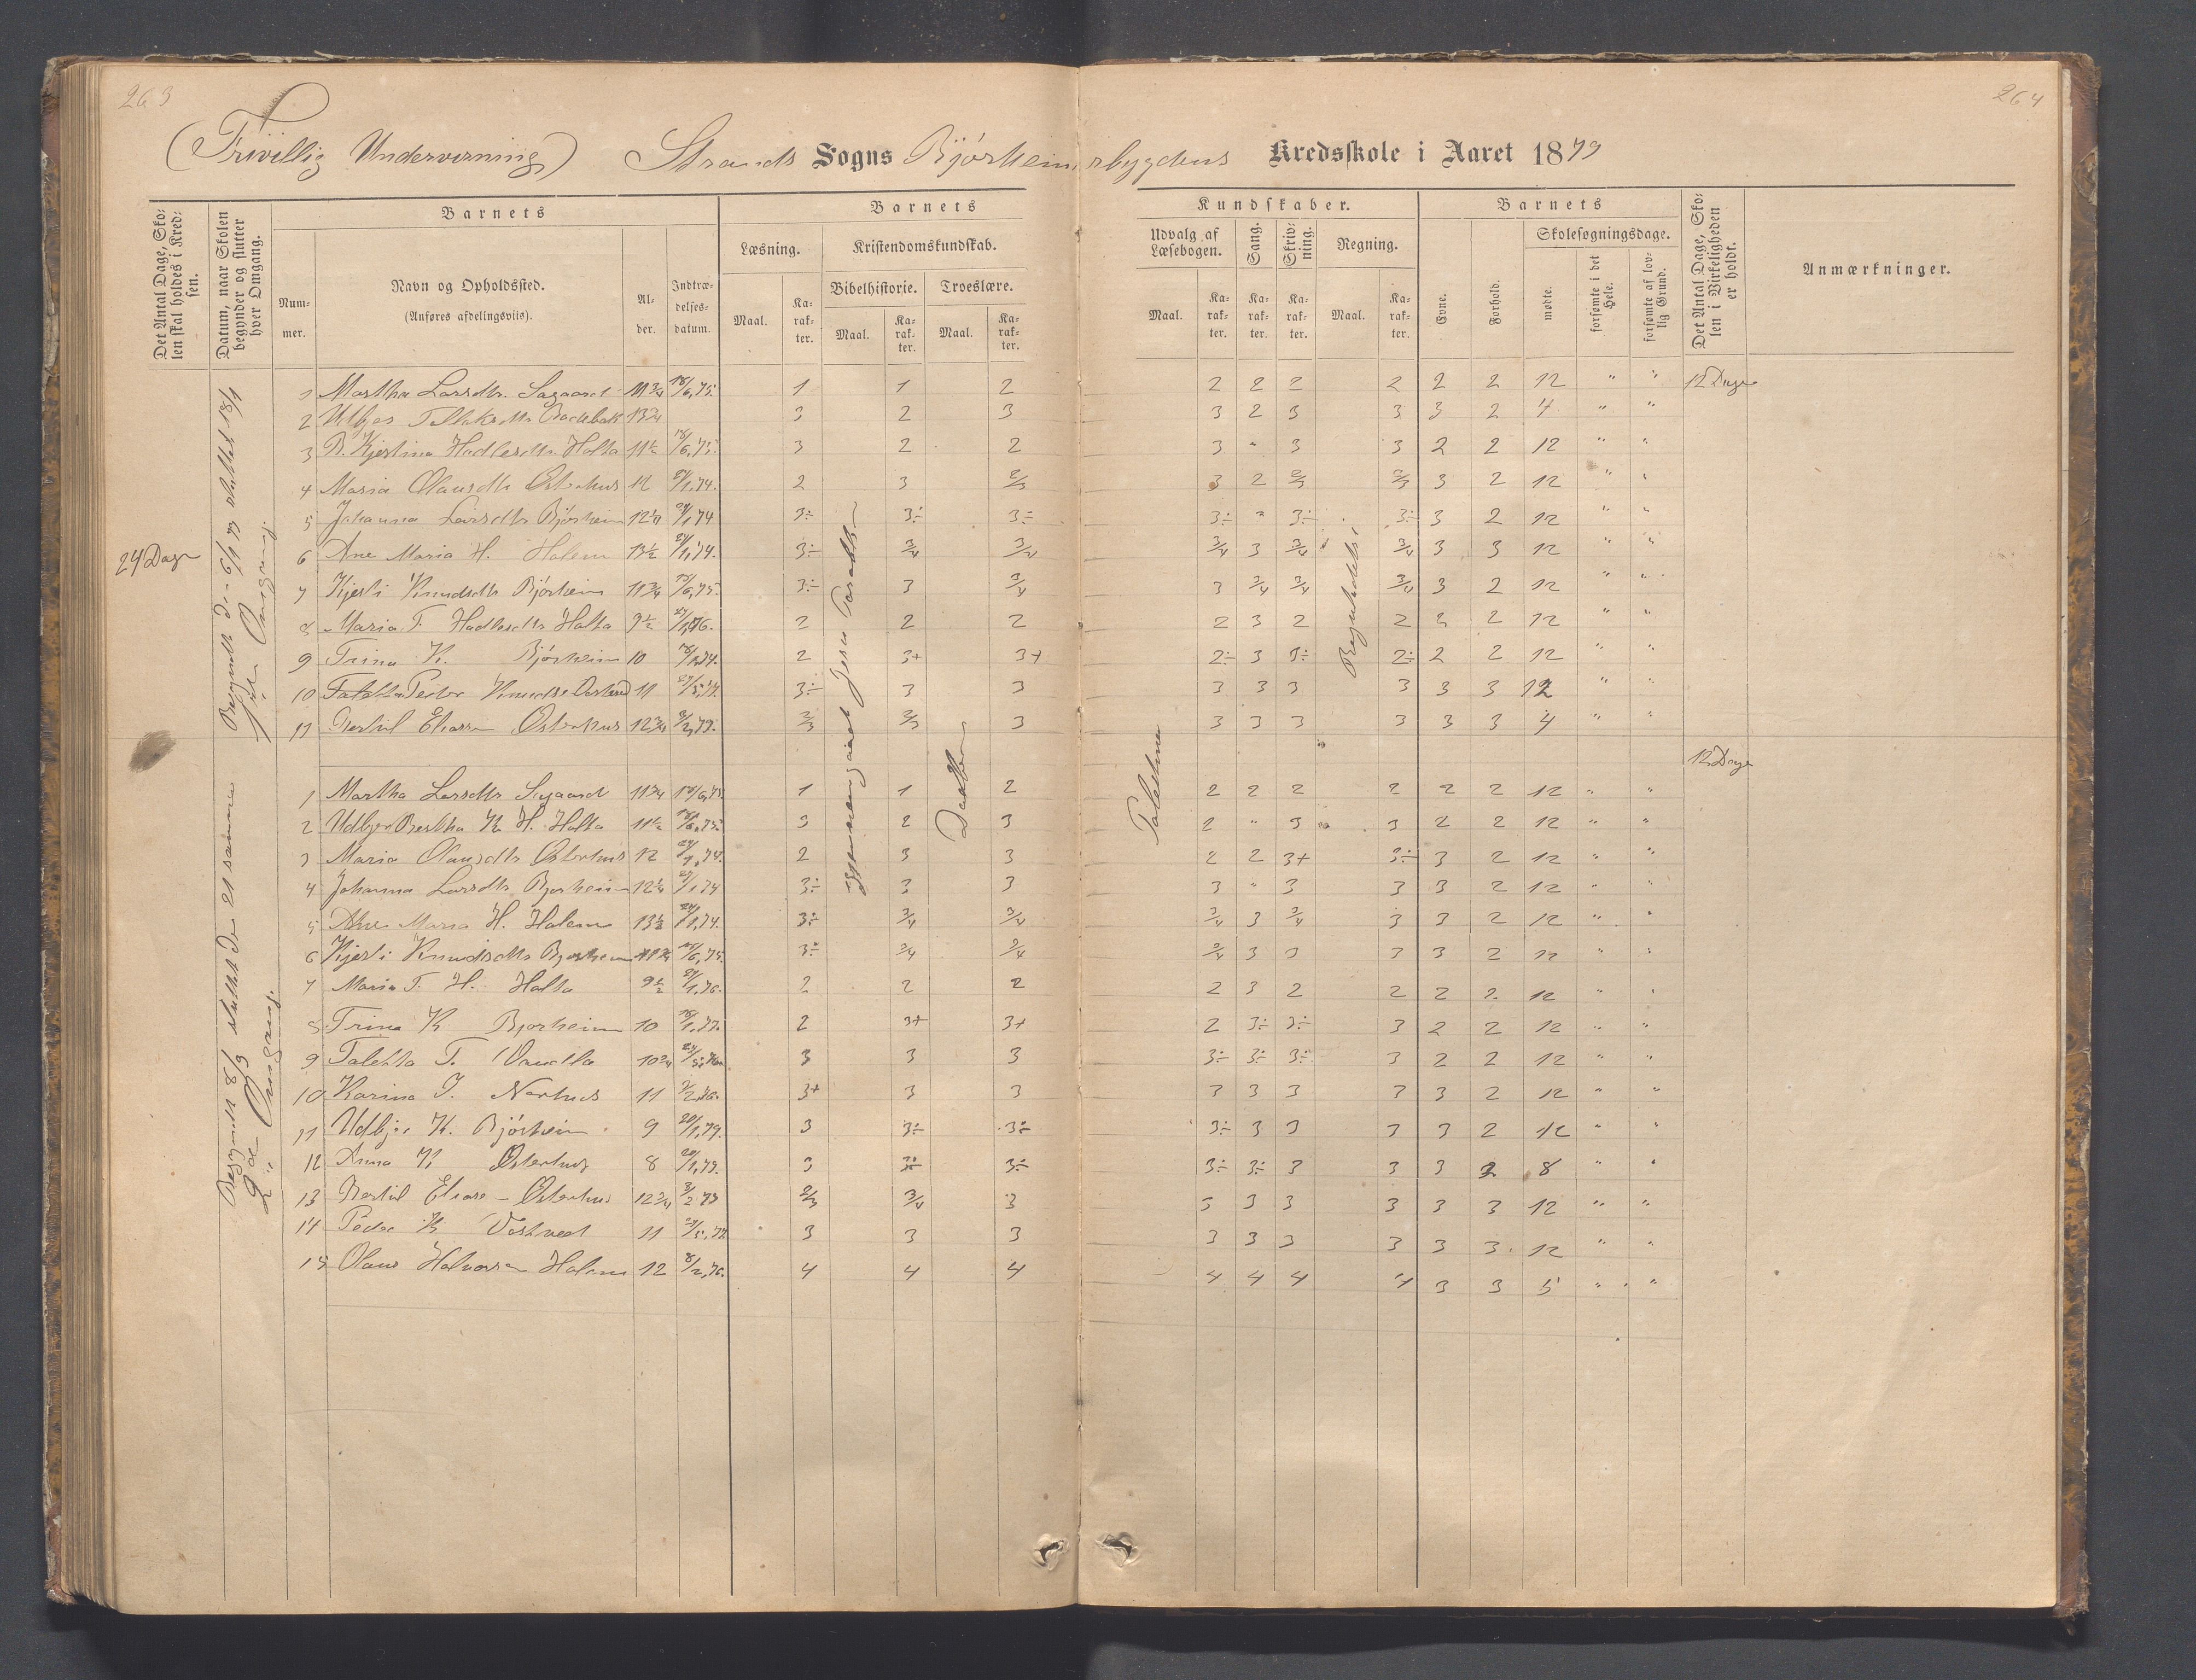 263
264
(Frivillig Undervisning) Strands Sogns Bjórheimsbygdens Kredsskole i Aaret 1879
Det Antal Dage, Skolen skal holdes i Kredsen.
Datum, naar Skolen begynder og slutter hver Omgang.
Barnets
Nummer.
Navn og Opholdssted.
(Anføres afdelingsviis).
Alder.
Indtrædelsesdatum.
Barnets
Læsning.
Kristendomskundskab.
Bibelhistorie.
Troeslære.
Maal.
Karakter.
Maal.
Karakter.
Maal.
Karakter.
Kundskaber.
Udvalg af Læsebogen.
Sang.
Skrivning.
Regning.
Maal.
Karakter.
Karakter.
Karakter.
Maal.
Karakter.
Barnets
Evne.
Forhold.
Skolesøgningsdage.
mødte.
forsømte i det Hele.
forsømte af lovlig Grund.
Det Antal Dage, Skolen i Virkeligheden er holdt.
Anmærkninger.
24 Dage
1 Martha Larsdtr. Sagaard 11 3/4 18/6,75. 1 1 2 2 2 2 2 2 2 12 " " 12 Dage
2 13 3/4 3 2 3 3 2 3 3 3 2 4 " "
3 B. Kjestina Hadlesdtr. Holta 11 1/2 18/6,75. 3 2 2 3 " 3 3 2 2 12 " "
4 Maria Olausdtr Østerhus 12 24/1,74. 2 3 2/3 3 2 2/3 2/3 3 2 12 " "
5 Johanna Larsdtr Bjórheim 12 1/4 24/1 74 3÷ 3÷ 3÷ 3÷ " 3÷ 3÷ 3 2 12 " "
6 Ane Maria H. Holem 13 1/2 24/1,74. 3÷ 3/4 3/4 3/4 3 3/4 3/4 3 3 12 " "
7 Kjesti Knudsdtr Bjórheim 11 3/4 15/6,75. 3÷ 3 3/4 3 3/4 3/4 3/4 3 2 12 " "
8 Maria T. Hadlesdtr Holta 9 1/2 27/1,76. 2 2 2 2 3 2 2 2 2 12 " "
9 Trina K. Bjórheim 10 2 3+ 3+ 2÷ 3 3÷ 2÷ 2 2 12 " "
10 Peder Knudse 11 3÷ 3 3 3 3 3 3 3 3 12 " "
11 Bertil Eliassen Østerhus 12 3/4 3/2,73. 2/3 2/3 3 3 3 3 3 3 3 4 " "
12 Dage
1 Martha Larsdtr Sagaard 11 3/4 18/6,75. 1 1 2 2 2 2 2 2 2 12 " "
2 Udbjør Bertha K H. Holta 11 1/2 18/6,75. 3 2 3 2 " 3 3 2 2 12 " "
3 Maria Olausdtr Østerhus 12 24/1,74. 2 3 3 2 2 3+ 3÷ 3 2 12 " "
4 Johanna Larsdtr Bjorheim 12 1/4 24/1,74 3÷ 3 3 3 " 3 3 3 2 12 " "
5 Ane Maria H. Holem 13 1/2 24/1,74. 3÷ 3/4 3/4 3/4 3 3/4 3 3 2 12 " "
6 Kjesti Knudsdtr Bjorheim 11 3/4 15/6,75. 3÷ 3/4 3/4 3/4 3 3 3 3 2 12 " "
7 Maria T. H. Holta 9 1/2 27/1,76. 2 2 2 2 3 2 2 2 2 12 " "
8 Trina K Bjorheim 10 18/1,77. 2 3+ 3+ 2 3÷ 3÷ 3 2 2 12 " "
9 Taletta T. 10 3/4 3 3 3 3÷ 3÷ 3÷ 3 2 2 12 " "
10 Karina J. 11 3+ 3 3 3 3 3 3 3 2 12 " "
11 Udbjør K. Bjórheim 9 20/1,79. 3 3÷ 3÷ 3÷ 3 3 3 3 2 12 " "
12 Anna K Østerhus 8 20/1,79. 3 3÷ 3÷ 3÷ 3÷ 3 3 3 2 8 " "
13 Bertil Eliase Østerhus 12 3/4 3/2 73 2/3 3/4 3 3 3 3 3 3 3 12 " "
14 Peder K 11 3 3 3 3 3 3 3 3 3 12 " "
15 Olaus Halvorsen Holem 12 8/2,76. 4 4 4 4 4 4 4 3 3 5 " "
Begyndte den 6/1 79 sluttet 18/1
1ste Omgang.
Begyndte 8/3 sluttet de 21 samme
2de Omgang.
Jesu
Daaben
Palestina